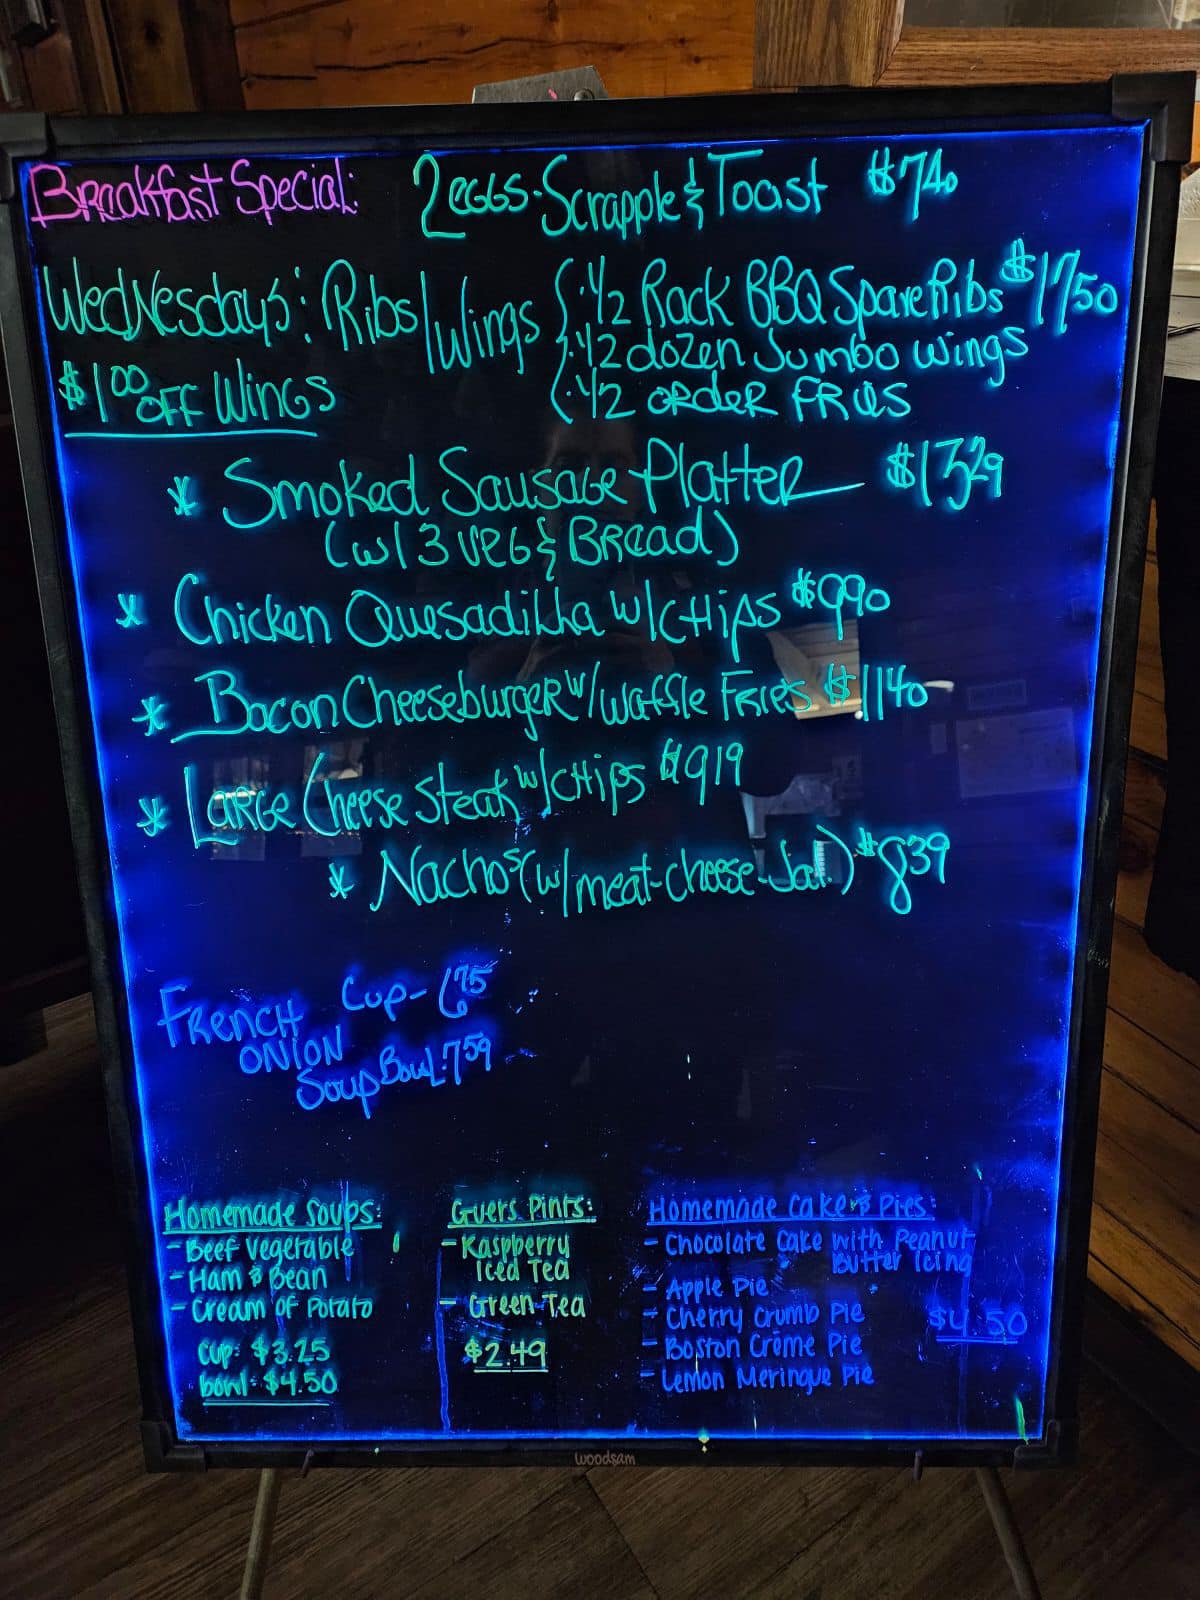 Breakfast Special: 2 eggs-Scrapple & Toast $740
Wednesdays: Ribs/Wings {·1/2 Rack BBQ Spare Ribs $1750
·1/2 dozen Jumbo Wings
$1.00 OFF Wings ·1/2 order Fries
* Smoked Sausage Platter $1329
(w/ 3 veg & Bread)
* Chicken Quesadilla w/Chips $990
* Bacon Cheeseburger w/Waffle Fries $1140
* Large Cheese Steak w/Chips $919
* Nachos (w/meat-cheese-Jal.) $839
French Cup-675
Onion
Soup Bowl.759
Homemade Soups:
- Beef Vegetable
- Ham & Bean
- Cream of Potato
cup: $3.25
bowl: $4.50
Guers Pints:
- Raspberry
Iced Tea
- Green Tea
$2.49
Homemade Cake & Pies:
- Chocolate Cake with Peanut
Butter Icing
- Apple Pie
- Cherry Crumb Pie
- Boston Crème Pie
- Lemon Meringue Pie
$4.50
woodsam